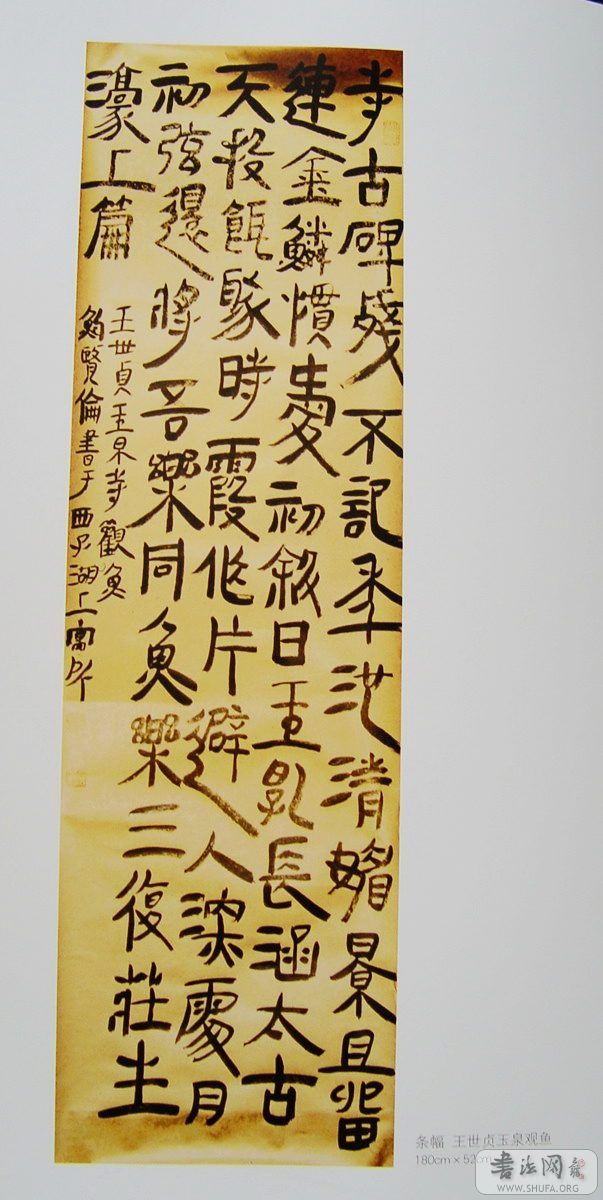 寺古碑殘不記年池清媚景且留
連金鱗慣愛初斜日玉乳長涵太古
天投餌聚時霞作片避人深處月
初弦還將吾樂同魚樂三復莊生
濠上篇
王世貞玉泉寺觀魚
鮑賢倫書于西子湖上寓所
条幅 王世贞玉泉观鱼
180cm×52cm
書法网
WWW.SHUFA.ORG